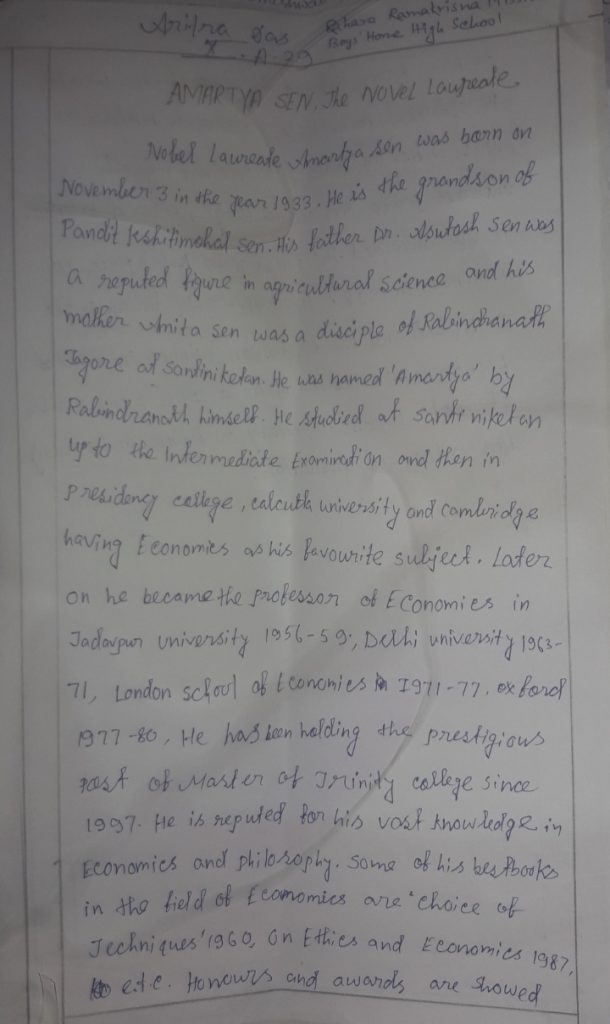 Aritra Das
X A-29
Rahara Ramakrisna Mission
Boys' Home High School
AMARTYA SEN, The NOVEL Laureate
Nobel Laureate Amartya Sen was born on
November 3 in the year 1933. He is the grandson of
Pandit Kshitimohal Sen. His father Dr. Asutosh Sen was
a reputed figure in agricultural science and his
mother Amita Sen was a disciple of Rabindranath
Tagore at Santiniketan. He was named 'Amartya' by
Rabindranath himself. He studied at Santiniketan
up to the Intermediate Examination and then in
Presidency college, calcutta university and Cambridge
having Economics as his favourite subject. Later
on he became the professor of Economics in
Jadavpur university 1956-59, Delhi university 1963-
71, London school of Economics 1971-77, oxford
1977-80, He has been holding the prestigious
post of Master of Trinity college since
1997. He is reputed for his vast knowledge in
Economics and philosophy. Some of his best books
in the field of Economics are 'Choice of
Techniques' 1960, On Ethics and Economics 1987,
e.t.c. Honours and awards are showed